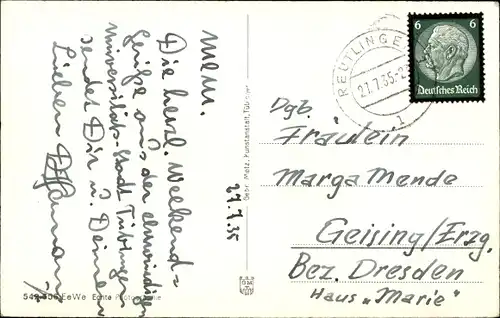 Mem.
Die herzl. Weekend=
Grüße aus der ehrwürdigen
Universitäts-Stadt Tübingen
sendet Dir u. Deinen
Lieben
27.7.35
Gebr. Metz, Kunstanstalt, Tübingen
542 EeWe Echte Photographie
REUTLINGEN
27.7.35
1
6 6
Deutsches Reich
Dgb.
Fräulein
Marga Mende
Geising/Erzg.
Bez. Dresden
Haus „Marie"